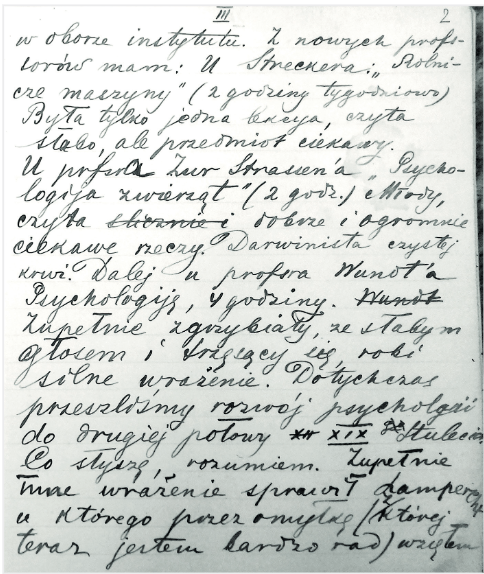 III 2
w oborze instytutu. Z nowych profs-
sorów mam: U Streckera: „Rolni-
cze maszyny" (2 godziny tygodniowo)
Była tylko jedna lekcya, czyta
słabo, ale przedmiot ciekawy.
U prfsra Zur Strassen'a „Psycho-
logija zwierząt" (2 godz.) Młody,
czyta ślicznie i dobrze i ogromnie
ciekawe rzeczy. Darwinista czystej
krwi. Dalej u profsra Wundt'a
Psychologiję, 4 godziny. Wundt
Zupełnie zgrzybiały, ze słabym
głosem i trzęsący się, robi
silne wrażenie. Dotychczas
przeszliśmy rozwój psychologii
do drugiej połowy XIX stulecia.
Co słyszę, rozumiem. Zupełnie
inne wrażenie sprawił Lamprecht
u którego przez omyłkę (której
teraz jestem bardzo rad) wziąłem